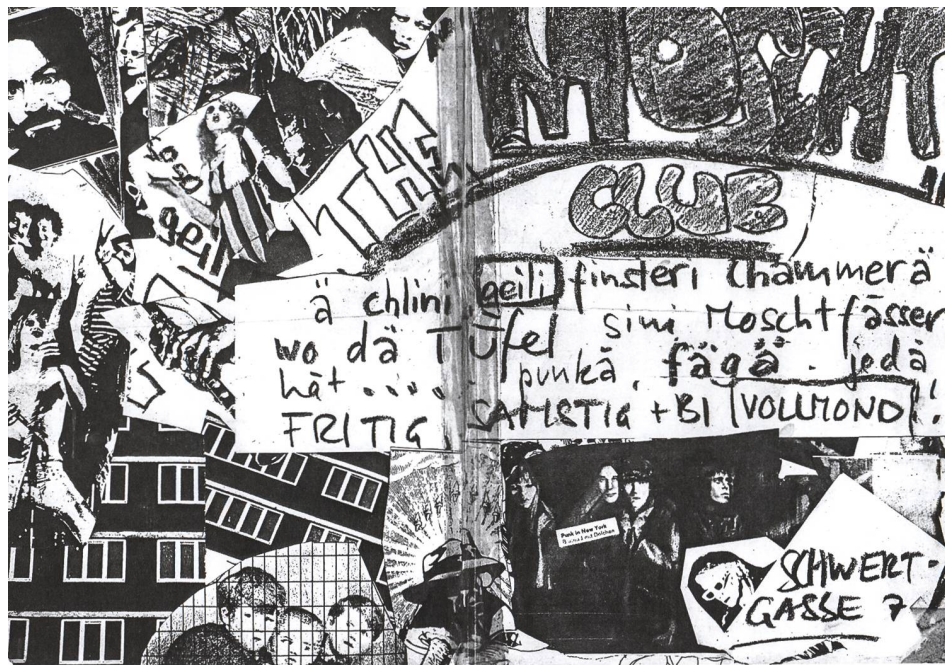 THE
CLUB
geil
ä chlini geili finsteri Chammerä
wo dä Tüfel sini Moschtfässer
hät ..... punkä. fägä. jedä
FRITIG, SAMSTIG + BI VOLLMOND!!
Punk in New York
SCHWERT-
GASSE 7